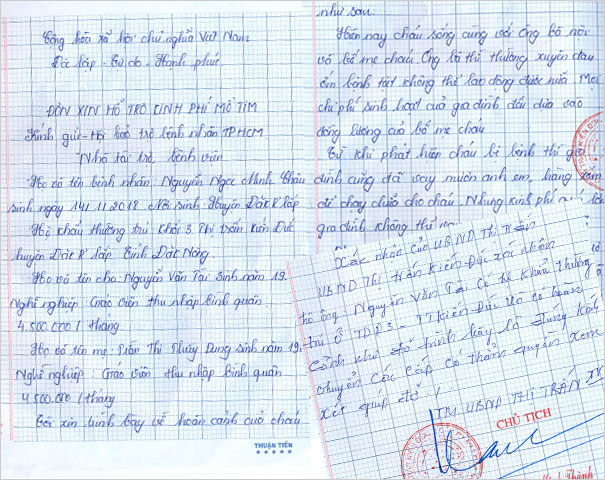 Cộng hòa xã hội chủ nghĩa Việt Nam
Độc lập - Tự do - Hạnh phúc
ĐƠN XIN HỖ TRỢ KINH PHÍ MỔ TIM
Kính gửi - Hội bảo trợ bệnh nhân TPHCM
Nhà tài trợ, bệnh viện
Họ và tên bệnh nhân Nguyễn Ngọc Minh Châu
sinh ngày 14/11/2012 nơi sinh Huyện Đăk R'lấp
Hộ khẩu thường trú Khối 3 thị trấn Kiến Đức
huyện Đăk R'lấp tỉnh Đăk Nông
Họ và tên cha Nguyễn Văn Tài sinh năm 19
Nghề nghiệp: Giáo viên thu nhập bình quân
4.500.000 / tháng
Họ và tên mẹ: Trần Thị Thùy Dung sinh năm 19
Nghề nghiệp: Giáo viên thu nhập bình quân
4 500.000 / tháng
Tôi xin trình bày về hoàn cảnh của cháu
THUẬN TIẾN
như sau:
Hiện nay cháu sống cùng với ông bà nội
và bố mẹ cháu. Ông bà thì thường xuyên đau
ốm bệnh tật không thể lao động được nữa. Mọi
chi phí sinh hoạt của gia đình đều dựa vào
đồng lương của bố mẹ cháu
Từ khi phát hiện cháu bị bệnh thì gia
đình cũng đã vay mượn anh em, hàng xóm
để chạy chữa cho cháu. Nhưng kinh phí
gia đình không thể
Xác nhận của UBND Thị Trấn
UBND Thị trấn Kiến Đức xác nhận
hộ ông: Nguyễn Văn Tài Có hộ khẩu thường
trú ở TDP3 - TT Kiến Đức và có hoàn
cảnh như đã trình bày là đúng kính
chuyển các cấp có thẩm quyền xem
xét giúp đỡ!
TM UBND THỊ TRẤN
CHỦ TỊCH
Thành